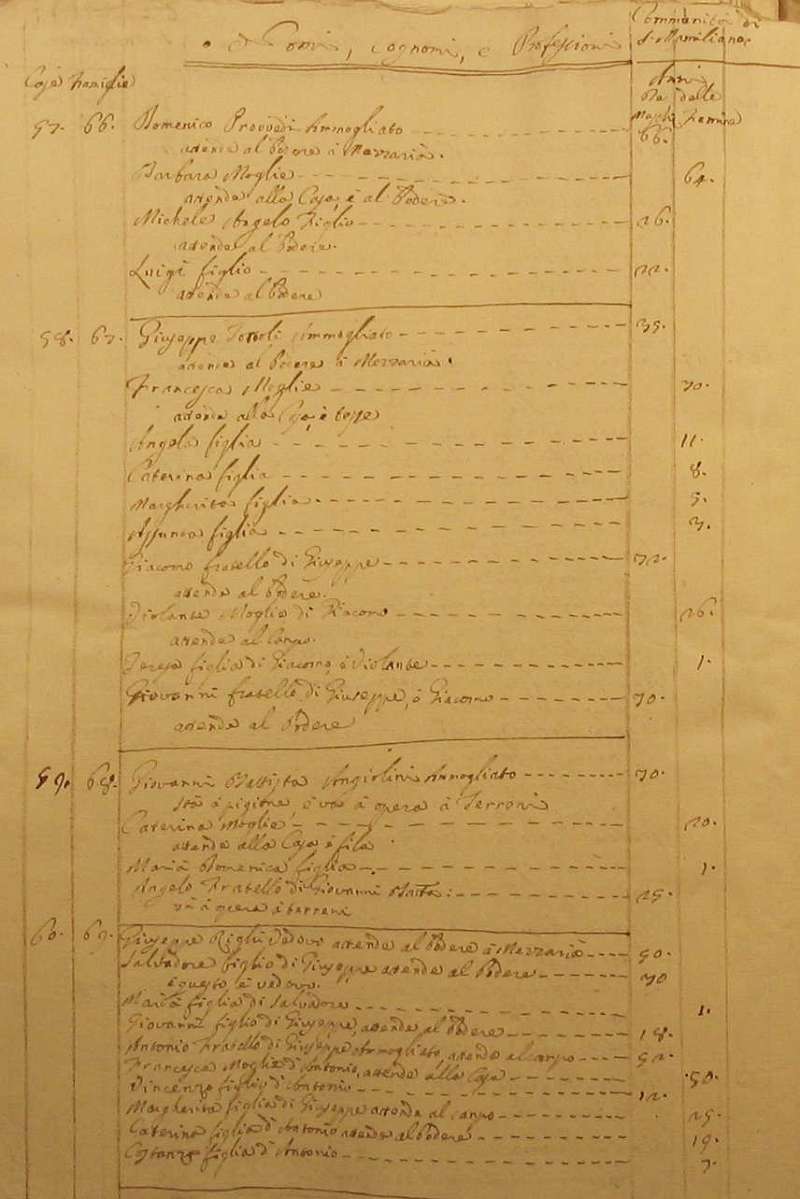 Nomi, Cognomi, e Professioni
Communità di
S. Mamiliano
Case Famiglie
Anni
Maschi Femine
57. 66. Domenico Provvedi Ammogliato 66.
attende al Podere à Mezzaria.
Barbara Moglie 64.
attende alla Casa, è al Podere.
Michele Angelo Figlio 26.
attende al Podere.
Luigi figlio 22.
attende al Podere
58. 67. Giuseppe Ammogliato 35.
attende al Podere à Mezzaria.
Francesca Moglie 30.
attende alla Casa, è
Angela figlia 11.
Caterina figlia 8.
Margherita figlia 5.
Assunta figlia 3.
Giacomo fratello di Giuseppe 32.
attende al Podere.
Violante Moglie di Giacomo 26.
attende al Campo.
Teresa figlia di Giacomo, è Violante 1.
Giovanni fratello di Giuseppe, è Giacomo 30.
attende al Podere
59. 68. Giovanni Battista Angiolini Ammogliato 30.
Stà à pigione, è và à opera à Terreni
Caterina Moglie 20.
attende alla Casa è fila
Maria Domenica figlia 1.
Angelo Fratello di Giovanni Batta: 25.
và à opera à terreni
60. 69. Giuseppe Righi Vedovo attende al Podere à Mezzaria 50.
Salvadore figlio di Giuseppe attende al Podere 30
è questo è vedovo.
Maria figlia di Salvadore 1.
Giovanni figlio di Giuseppe, attende al Podere 18.
Antonio Fratello di Giuseppe Ammogliato, attende al campo 52.
Francesca Moglie d'Antonio, attende alla Casa 50.
Vincenzo figlio d'Antonio 12.
Margherita figlia di Giuseppe attende al campo 25.
Caterina figlia d'Antonio attende al Podere 19.
Costanza figlia d'Antonio 7.